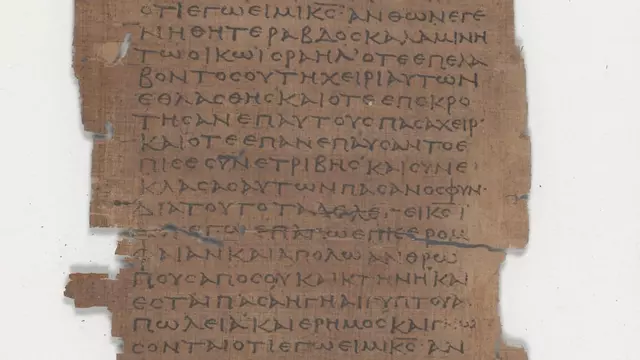 ΟΤΙΕΓΩΕΙΜΙΚ̅Σ̅ΑΝΘΩΝΕΓΕ
ΝΗΘΗΤΕΡΑΒΔΟΣΚΑΛΑΜΙΝΗ
ΤΩΟΙΚΩΙΣΡΑΗΛΟΤΕΕΠΕΛΑ
ΒΟΝΤΟΣΟΥΤΗΧΕΙΡΙΑΥΤΩΝ
ΕΘΛΑΣΘΗΣΚΑΙΟΤΕΕΠΕΚΡΟ
ΤΗΣΑΝΕΠΑΥΤΟΥΣΠΑΣΑΧΕΙΡ·
ΚΑΙΟΤΕΕΠΑΝΕΠΑΥΣΑΝΤΟΕ
ΠΙΣΕΣΥΝΕΤΡΙΒΗΣΚΑΙΣΥΝΕ
ΚΛΑΣΑΣΑΥΤΩΝΠΑΣΑΝΟΣΦΥΝ·
ΔΙΑΤΟΥΤΟΤΑΔΕΛΕΓΕΙΚ̅Σ̅Ι
ΕΓΩΕΠΑΓΩΕΠΙΣΕΡΟΜ
ΦΑΙΑΝΚΑΙΑΠΟΛΩΑΝΘΡΩ
ΠΟΥΣΑΠΟΣΟΥΚΑΙΚΤΗΝΗΚΑΙ
ΕΣΤΑΙΠΑΣΑΗΓΗΑΙΓΥΠΤΟΥΑ
ΠΩΛΕΙΑΚΑΙΕΡΗΜΟΣΚΑΙΓΝΩ
ΣΟΝΤΑΙΟΤΙΕΓΩΕΙΜΙΚ̅Σ̅ΑΝ